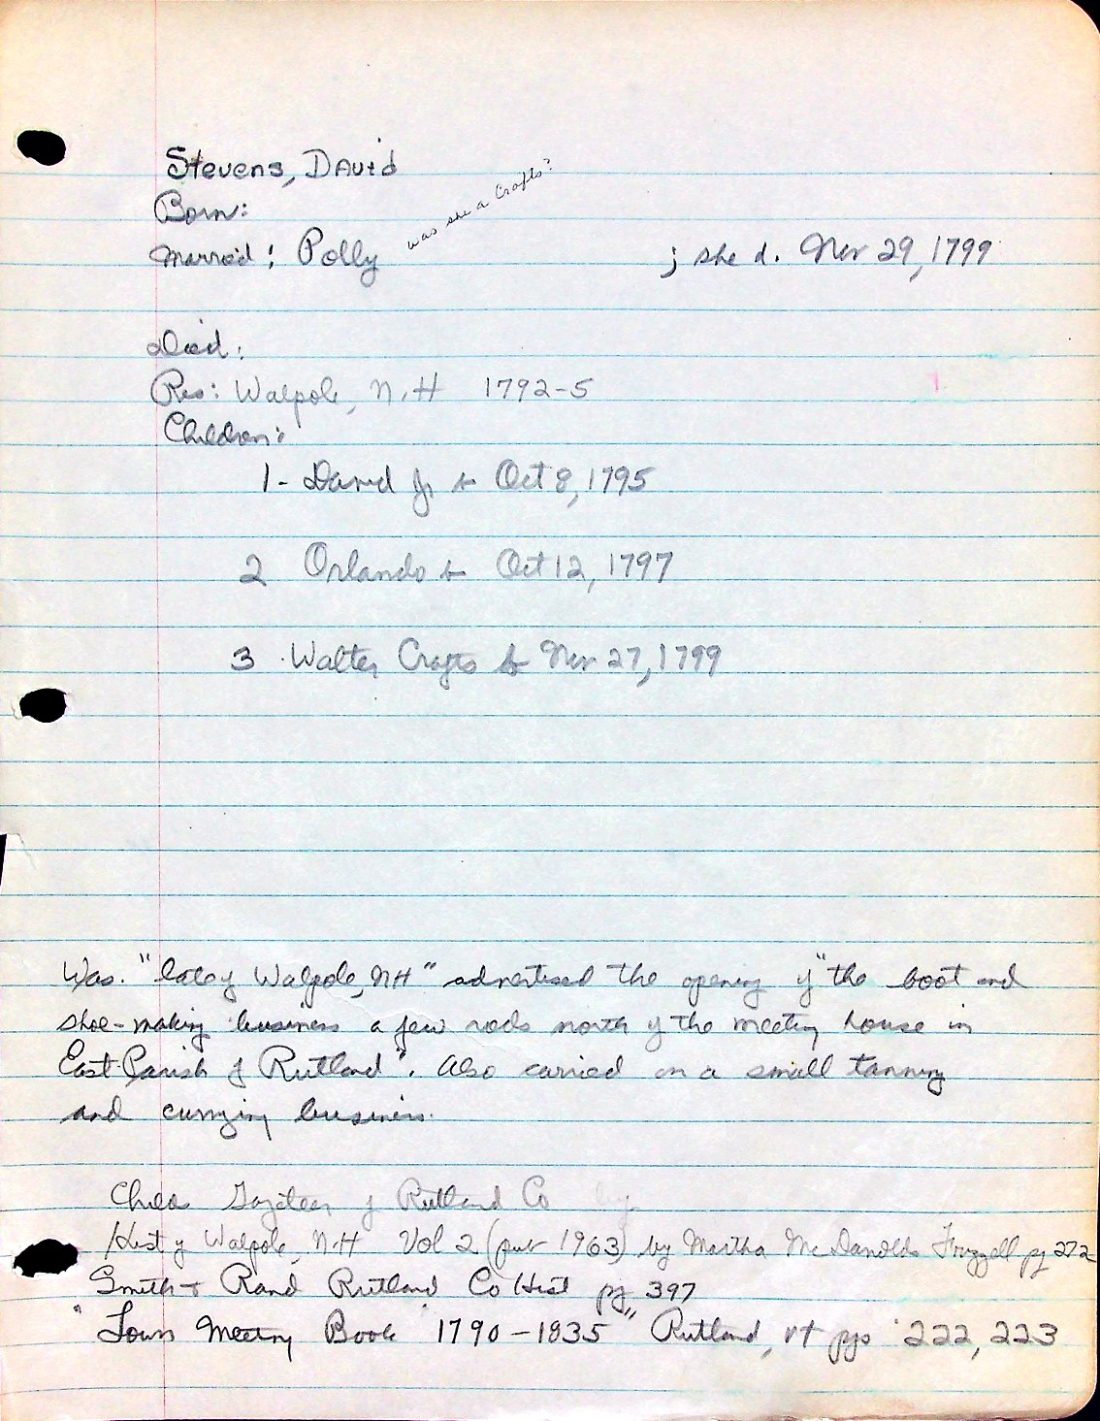 Stevens, David
Born:
was she a Crafts?
Married: Polly ; she d. Nov 29, 1799
Died:
Res: Walpole, N.H 1792-5
Children:
1- David Jr b Oct 8, 1795
2 Orlando b Oct 12, 1797
3 Walter Crafts b Nov 27, 1799
Was "late of Walpole, NH" advertised the opening of "the boot and
shoe-making business a few rods north of the meeting house in
East Parish of Rutland". Also carried on a small tanning
and currying business.
Childs Gazeteer of Rutland Co by
Hist of Walpole, N.H Vol 2 (pub 1963) by Martha McDanolds Frizzell pg 272
Smith & Rand Rutland Co Hist pg 397
"Town Meeting Book 1790-1835" Rutland, Vt pgs 222, 223